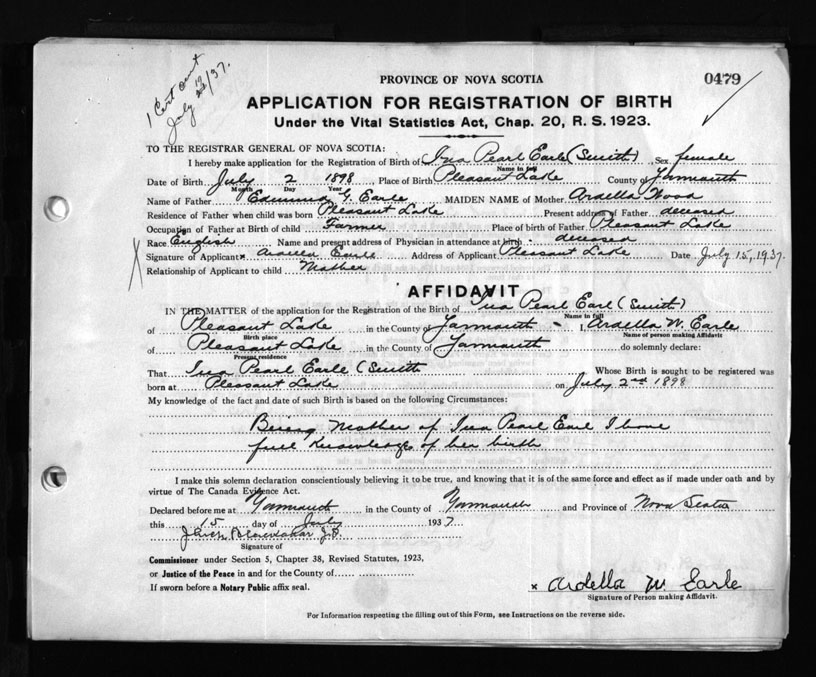 1 Cert sent
July /37.
PROVINCE OF NOVA SCOTIA
0479
APPLICATION FOR REGISTRATION OF BIRTH
Under the Vital Statistics Act, Chap. 20, R. S. 1923.
TO THE REGISTRAR GENERAL OF NOVA SCOTIA:
I hereby make application for the Registration of Birth of Ina Pearl Earle (Smith) Sex female
Name in full
Date of Birth July 2 1898 Place of Birth Pleasant Lake County of Yarmouth
Month Day Year
Name of Father Edmund G. Earle MAIDEN NAME of Mother Ardella Wood
Residence of Father when child was born Pleasant Lake Present address of Father deceased
Occupation of Father at Birth of child Farmer Place of birth of Father Pleasant Lake
Race English Name and present address of Physician in attendance at birth deceased
Signature of Applicant x Ardella Earle Address of Applicant Pleasant Lake Date July 15, 1937.
Relationship of Applicant to child Mother
AFFIDAVIT
IN THE MATTER of the application for the Registration of the Birth of Ina Pearl Earl (Smith)
Name in full
of Pleasant Lake in the County of Yarmouth I, Ardella W. Earle
Birth place Name of person making Affidavit
of Pleasant Lake in the County of Yarmouth do solemnly declare:
Present residence
That Ina Pearl Earle (Smith Whose Birth is sought to be registered was
born at Pleasant Lake on July 2nd 1898
My knowledge of the fact and date of such Birth is based on the following Circumstances:
Being Mother of Ina Pearl Earl I have
full knowledge of her birth
I make this solemn declaration conscientiously believing it to be true, and knowing that it is of the same force and effect as if made under oath and by
virtue of The Canada Evidence Act.
Declared before me at Yarmouth in the County of Yarmouth and Province of Nova Scotia
this 15 day of July 1937
J.P.
Signature of
Commissioner under Section 5, Chapter 38, Revised Statutes, 1923,
or Justice of the Peace in and for the County of
If sworn before a Notary Public affix seal.
x Ardella W Earle
Signature of Person making Affidavit.
For Information respecting the filling out of this Form, see Instructions on the reverse side.